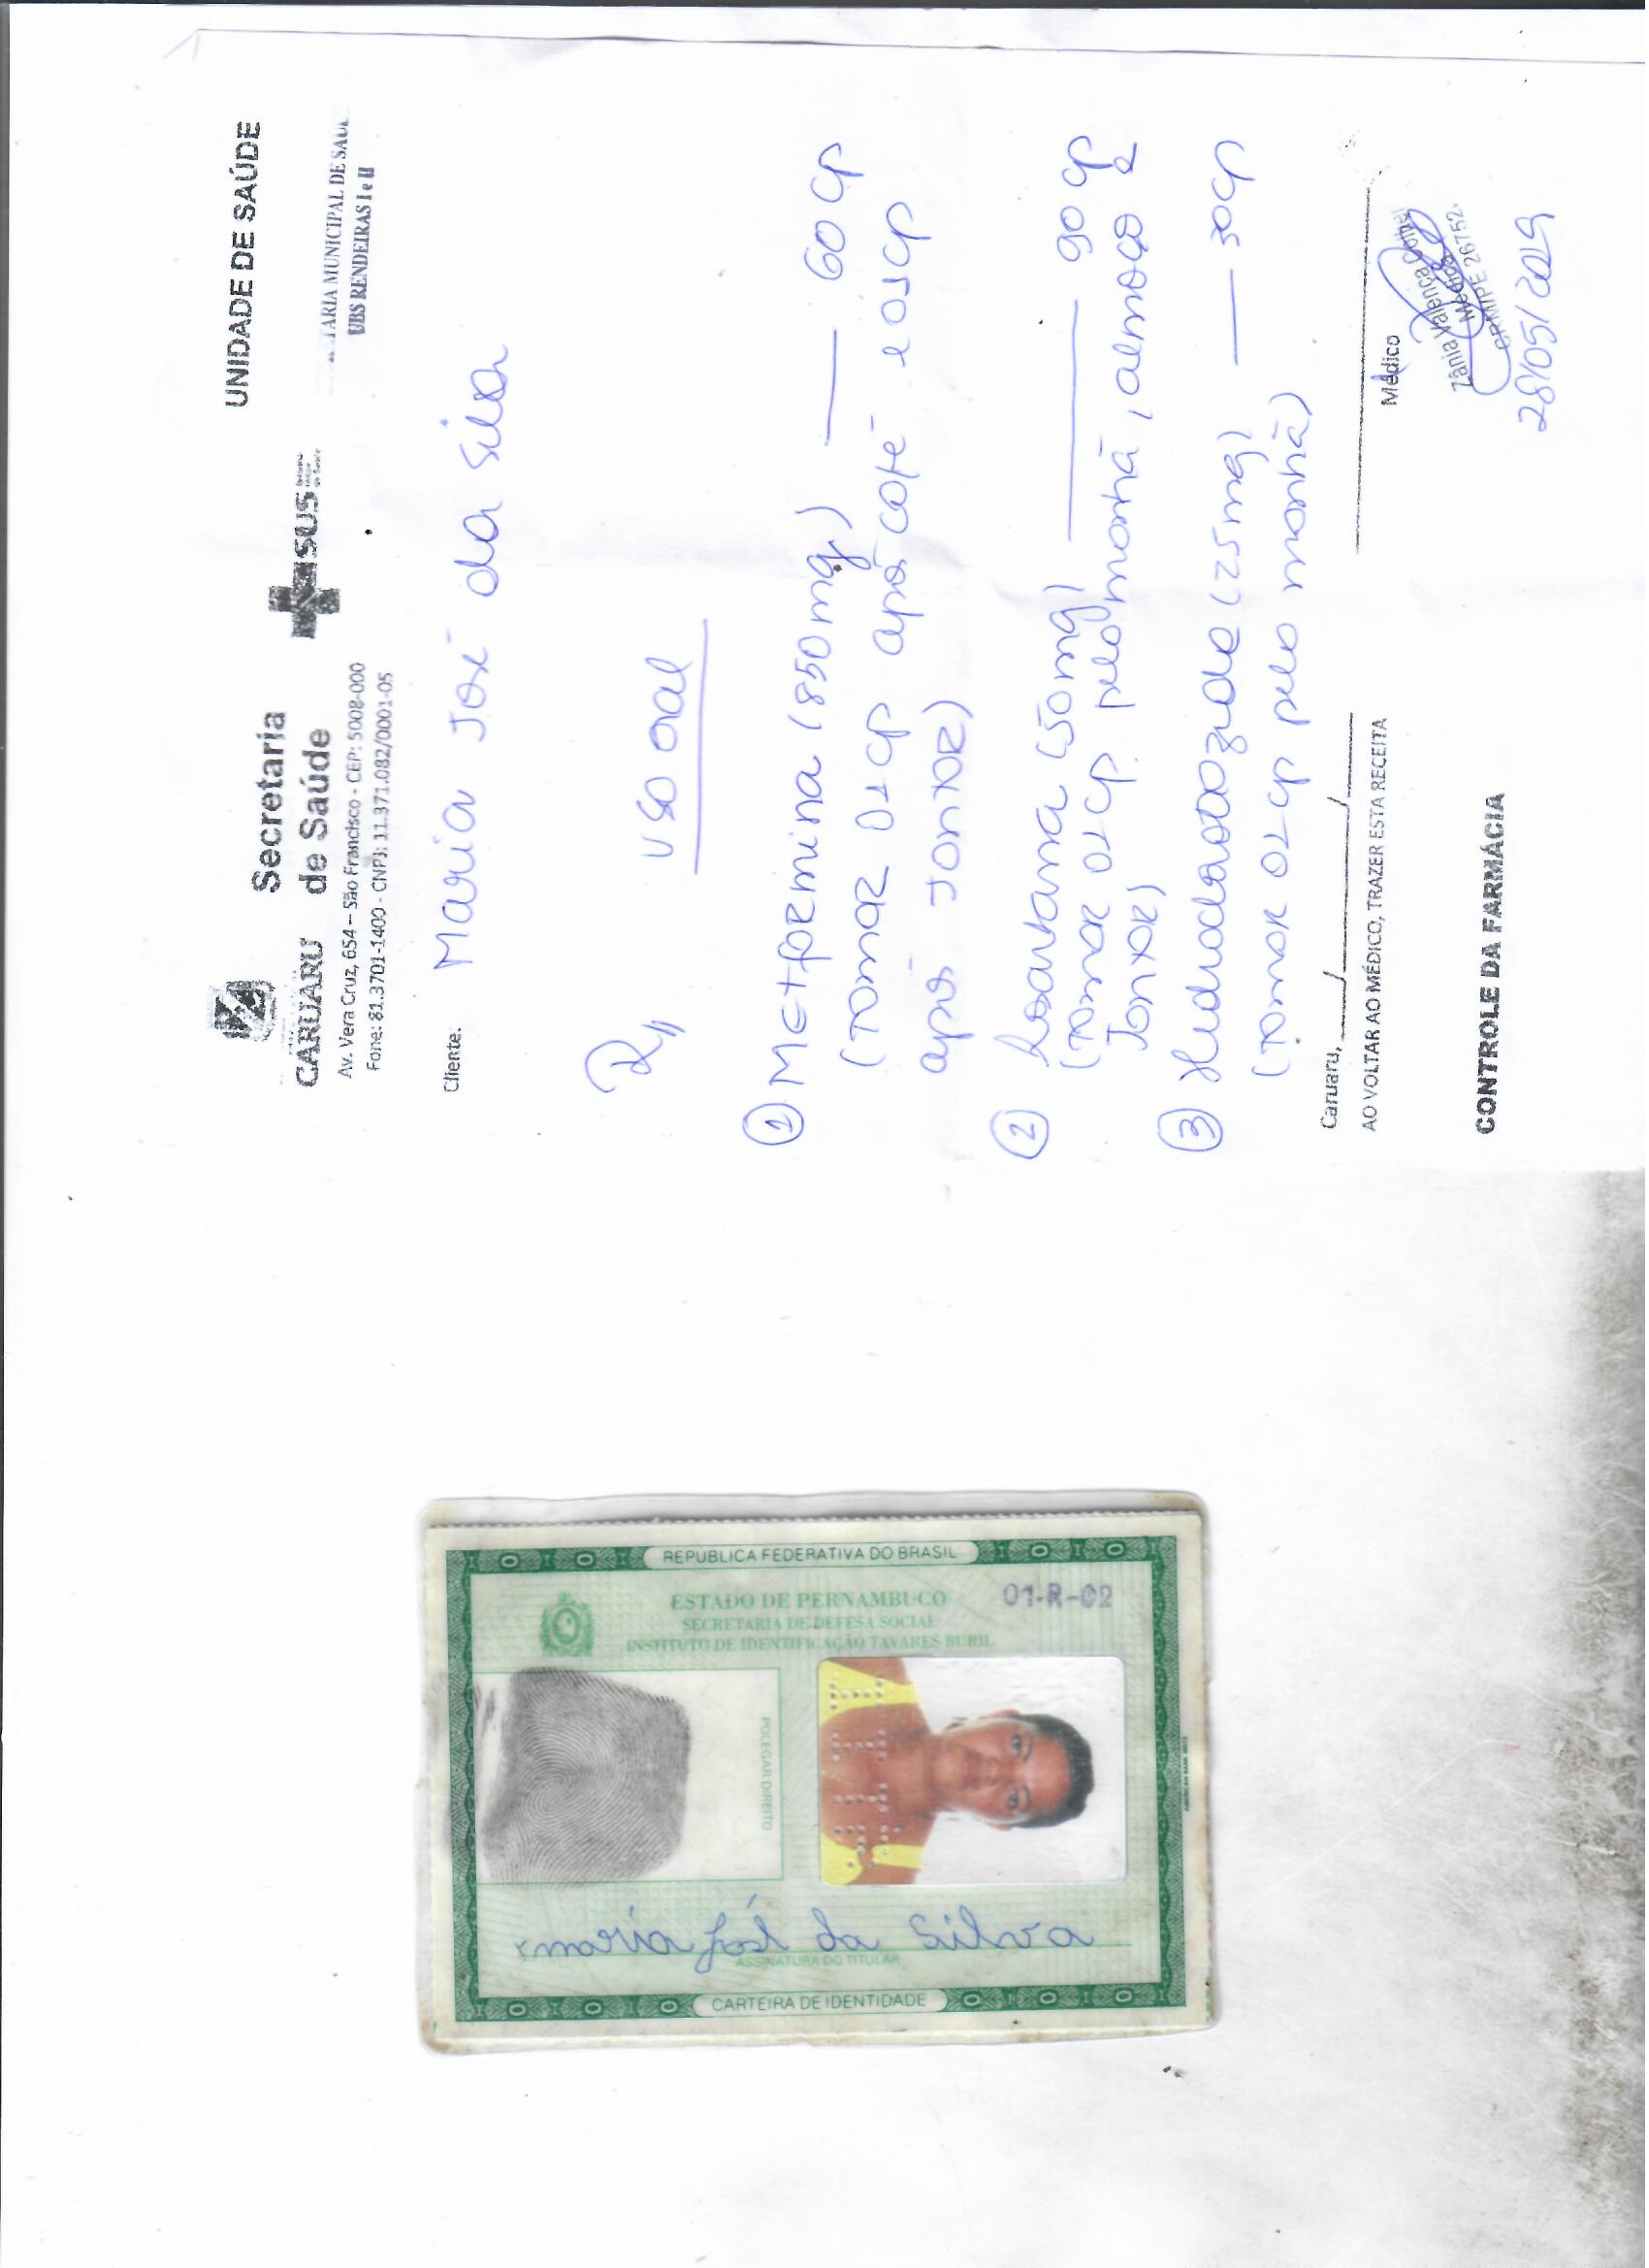 CARUARU
Secretaria
de Saúde
SUS
UNIDADE DE SAÚDE
TARIA MUNICIPAL DE SAÚ
UBS RENDEIRAS I e II
Av. Vera Cruz, 654 – São Francisco - CEP: 5008-000
Fone: 81.3701-1400 - CNPJ: 11.371.082/0001-05
Cliente: Maria José da Silva
R//
uso oral
① Metformina (850mg) — 60 cp
(Tomar 01 cp após café e 01 cp
após jantar)
② Losartana (50mg) — 90 cp
(Tomar 01 cp pela manhã, almoço e
jantar)
③ Hidroclorotiazida (25mg) — 30cp
(Tomar 01 cp pela manhã)
Caruaru, ____/____/____
Médico
AO VOLTAR AO MÉDICO, TRAZER ESTA RECEITA
Zânia Valença
Médica
CRM/PE 26752
28/05/2019
CONTROLE DA FARMÁCIA
REPÚBLICA FEDERATIVA DO BRASIL
ESTADO DE PERNAMBUCO
SECRETARIA DE DEFESA SOCIAL
INSTITUTO DE IDENTIFICAÇÃO TAVARES BURIL
01-R-02
POLEGAR DIREITO
maria José da Silva
ASSINATURA DO TITULAR
CARTEIRA DE IDENTIDADE